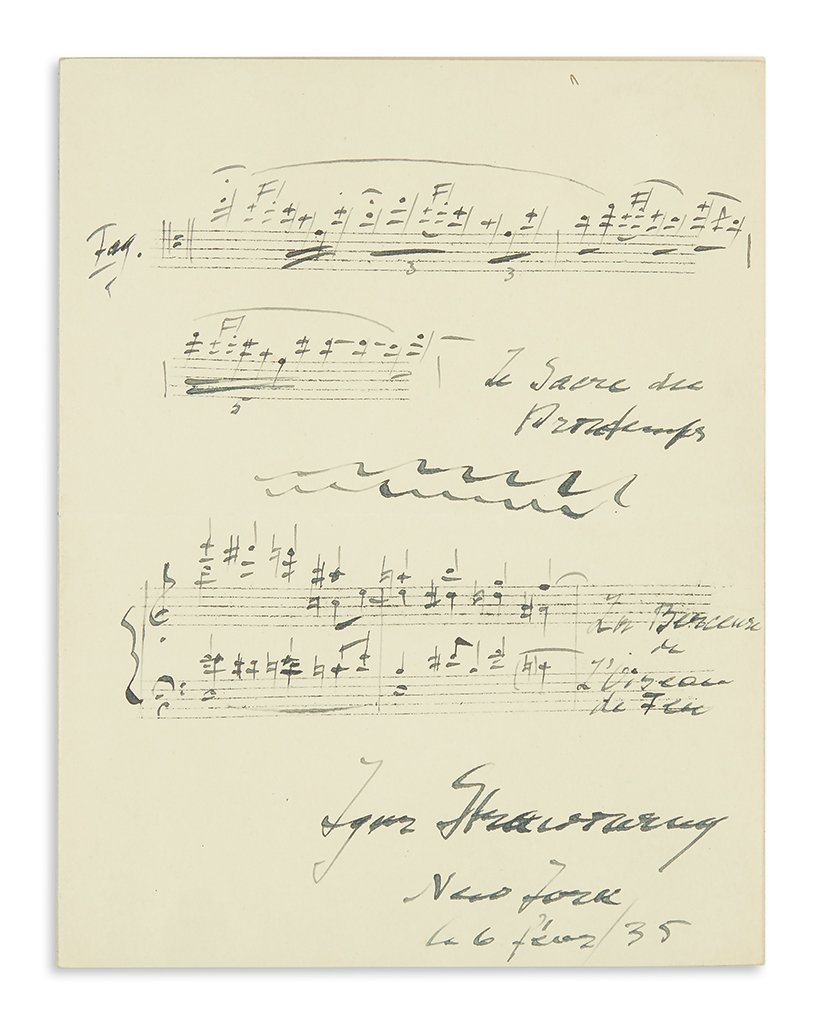 Fag.
3 3
5
Le Sacre du
Printemps
La Berceuse
de
L'Oiseau
de Feu
Igor Strawinsky
New York
le 6 févr/35